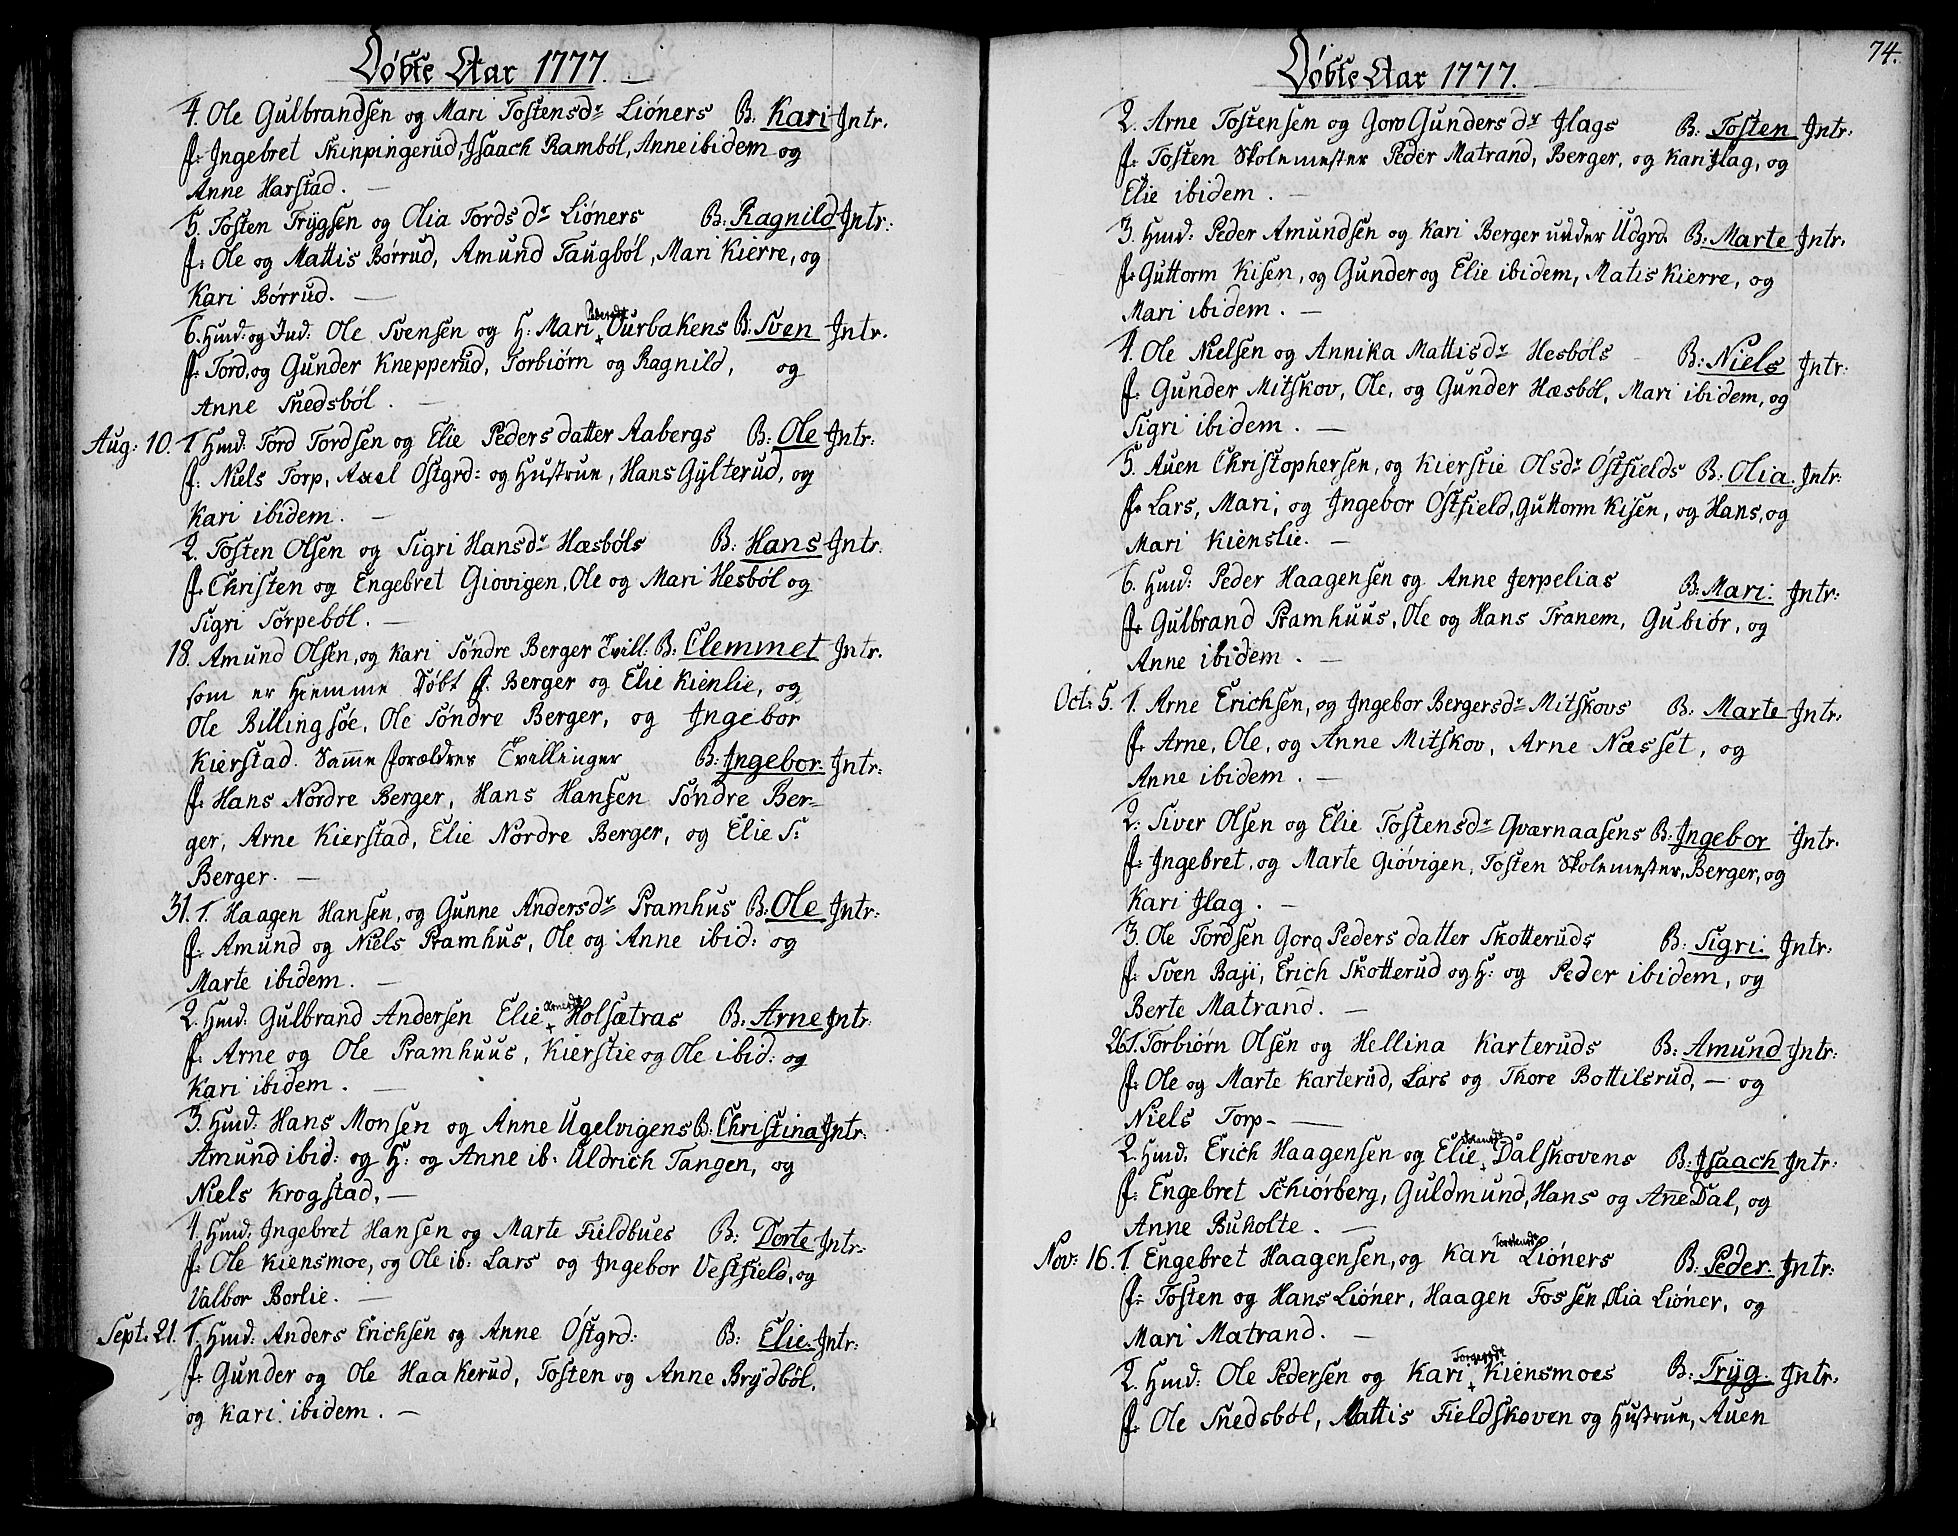 Døbte Aar 1777.
4. Ole Gulbrandsen og Mari Tostensdr Liøners B. Kari Intr.
f: Ingebret Skinpingerud, Isaach Rambøl, Anne ibidem og
Anne Harstad. —
5. Tosten Trygsen og Olia Tordsdr Liøners B: Ragnild Intr:
f: Ole og Mattis Børrud, Amund Taugbøl, Mari Kierre, og
Kari Børrud. —
6. Hmd: og Ind: Ole Svensen og H: Mari Ourbakens B: Sven Intr.
f: Tord, og Gunder Knepperud, Torbiørn og Ragnild, og
Anne Snedsbøl. —
Aug: 10. 1. Hmd: Tord Tordsen og Elie Peders datter Aabergs B: Ole Intr:
f: Niels Torp, Axel Østgrd: og Hustrue, Hans Gylterud, og
Kari ibidem. —
2. Tosten Olsen og Sigri Hansdr Hæsbøls B: Hans Intr:
f: Christen og Engebret Giøvigen, Ole og Mari Hesbøl og
Sigri Torpebøl. —
18. Amund Olsen, og Kari Søndre Berger Tvill: B: Clemmet Intr.
som er Hiemme Døbt f: Berger og Elie Kienlie, og
Ole Billingsøe, Ole Søndre Berger, og Ingebor
Kierstad. Samme forældres Tvillinger B: Ingebor. Intr:
f: Hans Nordre Berger, Hans Hansen Søndre Ber=
ger, Arne Kierstad, Elie Nordre Berger, og Elie S:
Berger. —
31. 1. Haagen Hansen, og Gunne Andersdr Pramhus B: Ole Intr:
f: Amund og Niels Pramhus, Ole og Anne ibid: og
Marte ibidem. —
2. Hmd: Gulbrand Andersen Elie Holsætras B. Arne Intr:
f: Arne og Ole Pramhuus, Kierstie og Ole ibid: og
Kari ibidem. —
3. Hmd: Hans Monsen og Anne Ugelvigens B: Christina Intr:
Amund ibid: og H: og Anne ib: Uldrich Tangen, og
Niels Krogstad. —
4. Hmd: Ingebret Hansen og Marte Fieldbues B: Dorte Intr:
f: Ole Kiensmoe, og Ole ib: Lars og Ingebor Vestfield, og
Valbor Borlie. —
Sept: 21. 1. Hmd: Anders Erichsen og Anne Østgrd: B: Elie. Intr:
f: Gunder og Ole Haakerud, Tosten og Anne Brydbøl,
og Kari ibidem. —
74.
Døbte Aar 1777.
2. Arne Tostensen og Goro Gundersdr Ilags B: Tosten Intr:
f: Tosten Skolemester Peder Matrand, Berger, og Kari Ilag, og
Elie ibidem. —
3. Hmd: Peder Amundsen og Kari Berger under Udgrd. B: Marte Intr.
f: Guttorm Kisen, og Gunder og Elie ibidem, Matis Kierre, og
Mari ibidem. —
4. Ole Nielsen og Annika Mattisdr Hesbøls B: Niels Intr:
f: Gunder Mitskov, Ole, og Gunder Hæsbøl, Mari ibidem, og
Sigri ibidem. —
5. Auen Christophersen, og Kierstie Olsdr Østfields B: Olia. Intr:
f: Lars, Mari, og Ingebor Østfield, Guttorm Kisen, og Hans, og
Mari Kienslie. —
6. Hmd: Peder Haagensen og Anne Jerpelias B: Mari. Intr:
f: Gulbrand Pramhuus, Ole og Hans Tranem, Gubiør, og
Anne ibidem. —
Oct: 5. 1. Arne Erichsen, og Ingebor Bergersdr Mitskovs B: Marte Intr:
f: Arne, Ole, og Anne Mitskov, Arne Næsset, og
Anne ibidem. —
2. Siver Olsen og Elie Tostensdr Qværnaasens B: Ingebor Intr.
f: Ingebret, og Marte Giøvigen, Tosten Skolemester, Berger, og
Kari Ilag. —
3. Ole Tordsen Gora Peders datter Skotteruds B: Sigri. Intr:
f: Sven Baji, Erich Skotterud og H: og Peder ibidem, og
Berte Matrand. —
26. 1. Torbiørn Olsen og Hellina Karteruds B: Amund Intr:
f: Ole og Marte Karterud, Lars og Thore Bottilsrud, — og
Niels Torp. —
2. Hmd: Erich Haagensen og Elie Dalskovens B: Isaach Intr:
f: Engebret Schiørberg, Guldmund, Hans og Anne Dal, og
Anne Buholte. —
Nov: 16. 1. Engebret Haagensen, og Kari Liøners B: Peder. Intr:
f: Tosten og Hans Liøner, Haagen Fossen, Olia Liøner, og
Mari Matrand. —
2. Hmd: Ole Pedersen og Kari Kiensmoes B: Tryg. Intr:
f: Ole Snedsbøl, Mattis Fieldskoven og Hustrue, Auen